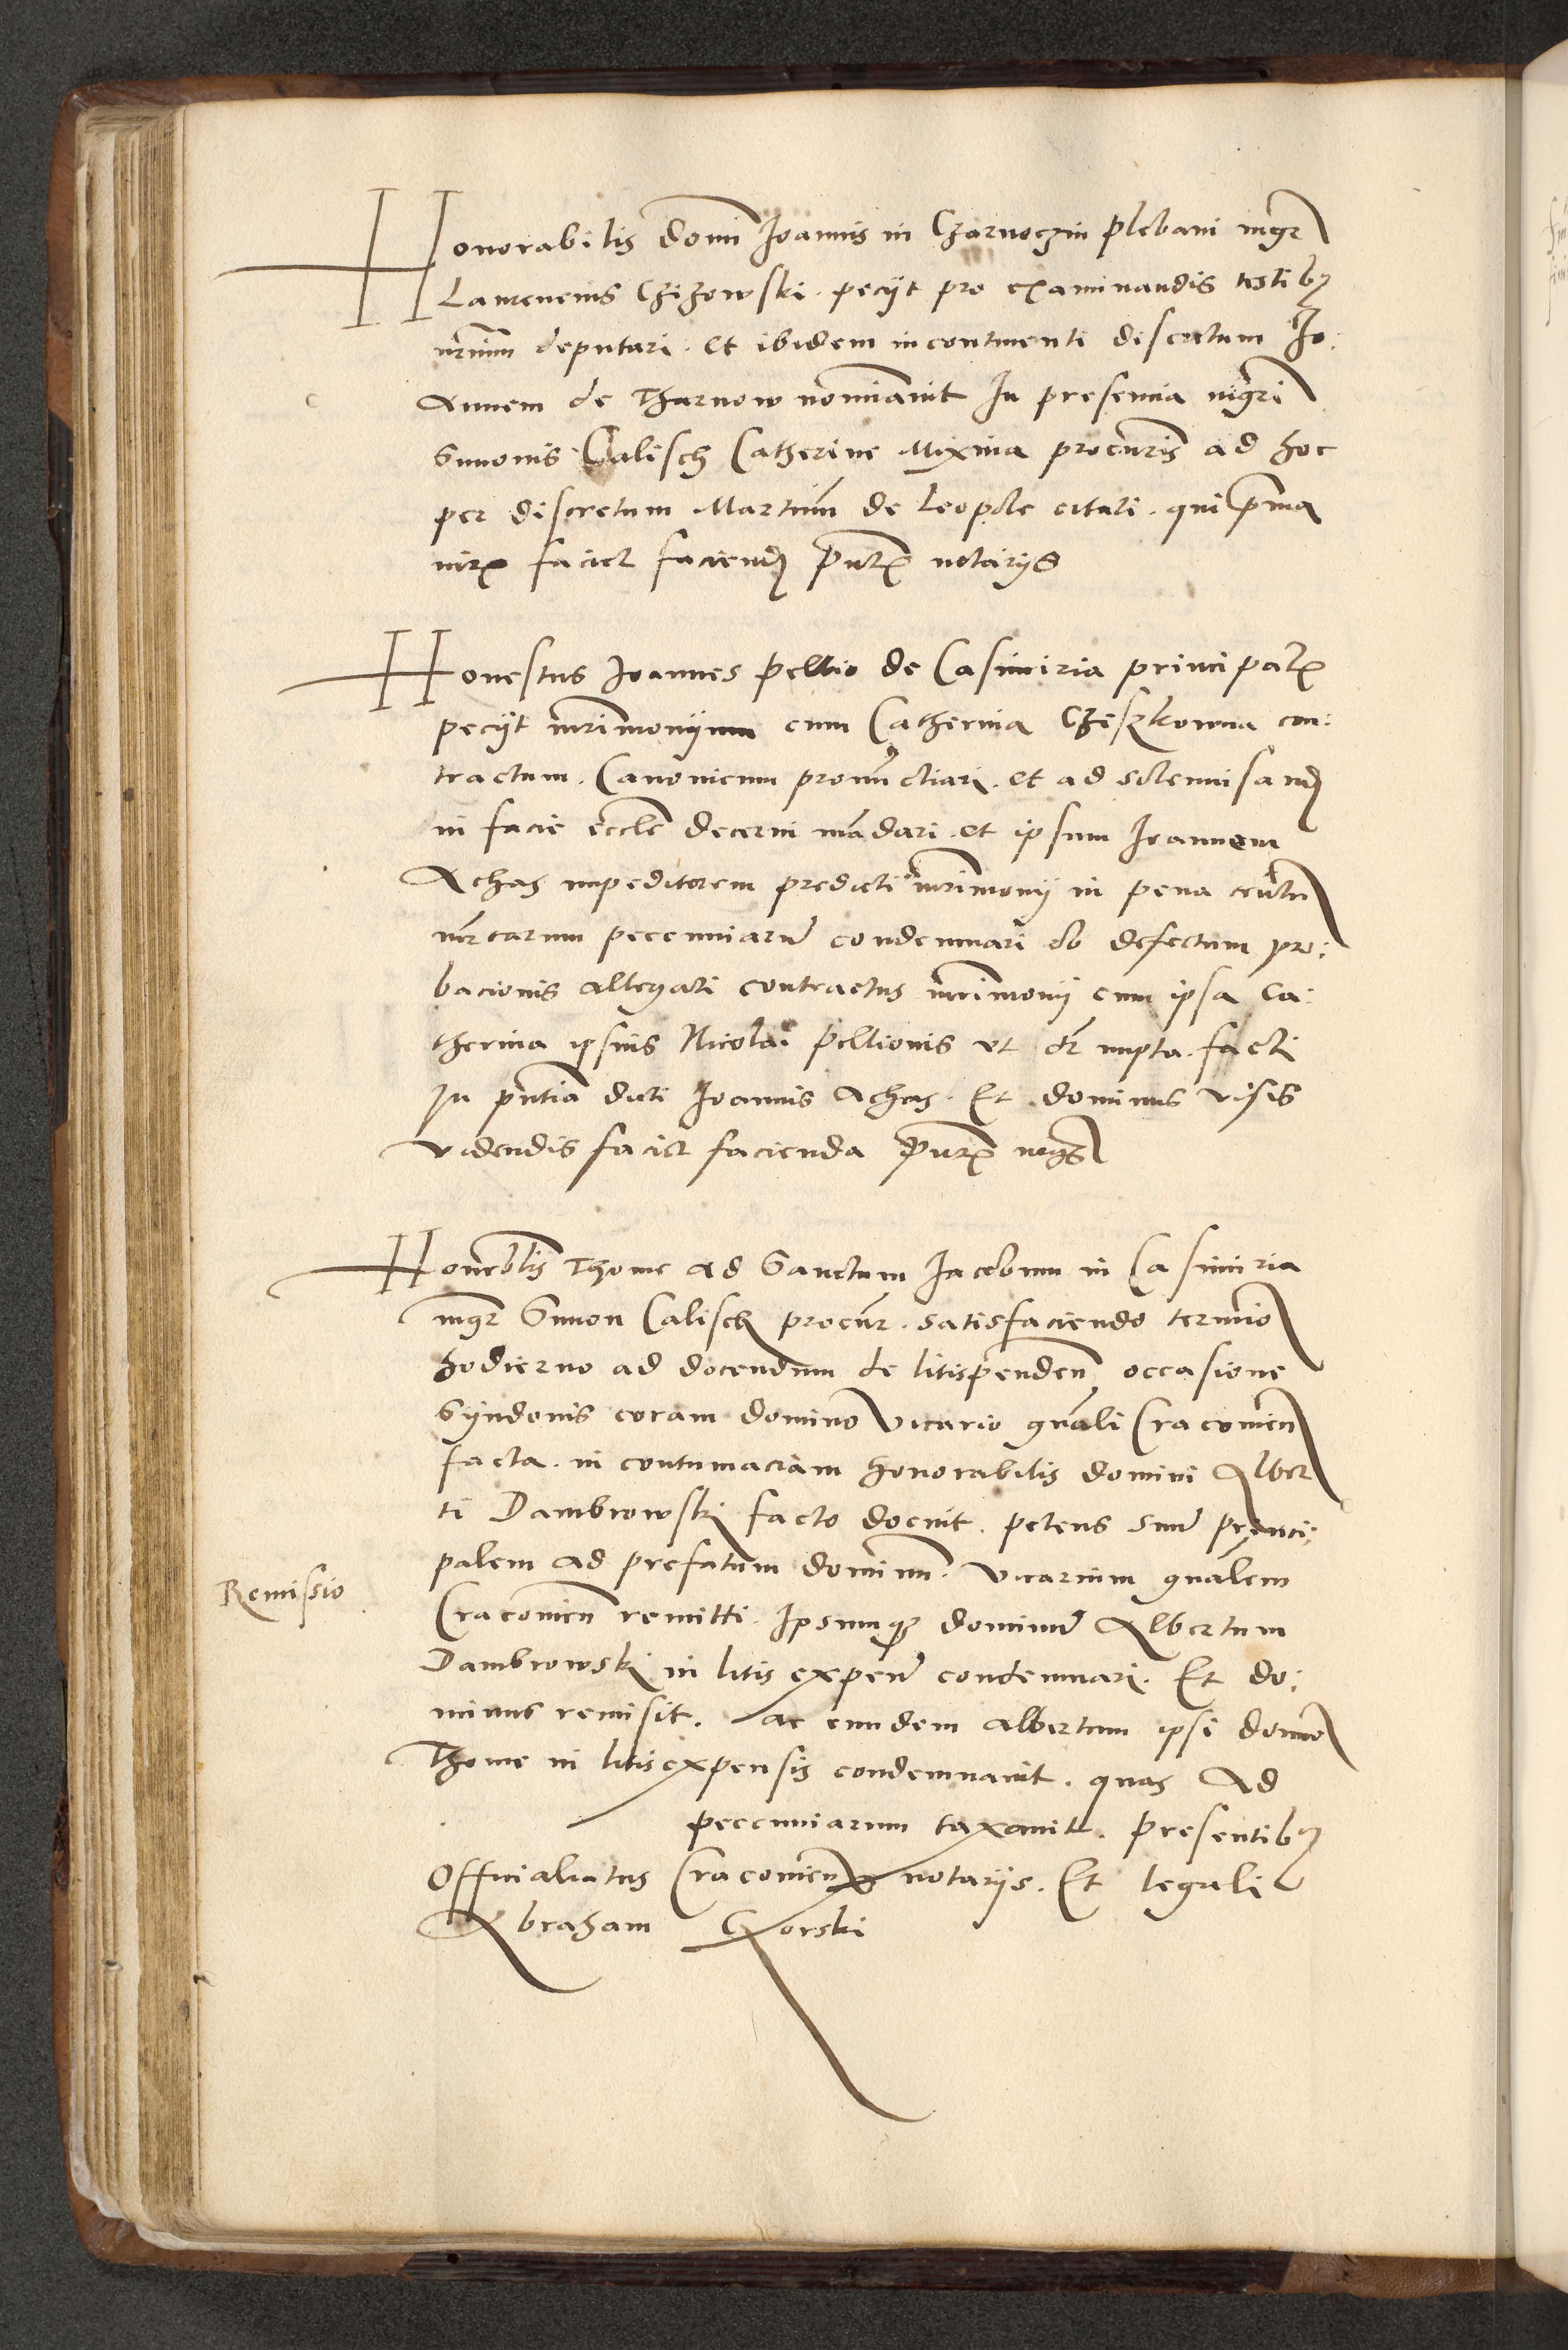 Honorabilis domi Joannis in Czarnoczin plebani mgr
Laurencius Czizowski. peciit pro examinandis testibus
nrium deputari. et ibidem incontinenti discretum Jo:
annem de Tharnow nominavit In presencia mgri
Simonis Calisch Catherine procuris ad hoc
per discretum Martinum de Leopole citati. qui
faciet faciend pntibus notariis
Honestus Joannes pellio de Casimiria principalis
peciit mrimonium cum Catherina Czeszkowna con:
tractum. Canonicum pronunctiari. et ad solemnisand
in facie eccle decerni mandari. et ipsum Joannem
Achas impeditorem predicti mrimonii in pena centum
mrcarum peccuniarum condemnari ob defectum pro:
bacionis allegati contractus mrimonii cum ipsa Ca:
therina ipsius Nicolai pellionis ut dr nupta. facti
In pntia dicti Joannis Achas. Et dominus visis
videndis faciet facienda pntibus
Honorabilis Thome ad Sanctum Jacobum in Casimiria
mgr Simon Calisch procur. satisfaciendo termino
hodierno ad docendum de litispenden occasione
Syndonis coram domino vicario gnali Cracovien
facta. in contumaciam honorabilis domini Alber
ti Dambrowski facto docuit. petens suum princi:
palem ad prefatum dominum. vicarium gnalem
Remissio
Cracovien remitti. Ipsumque dominum Albertum
Dambrowski in litis expen condemnari. Et do:
minus remisit. ac eundem albertum ipsi domino
Thome in litis expensis condemnavit. quas Ad
peccuniarum taxavit. presentibus
Officialatus Cracovien notariis. Et legali
Abraham Gorski